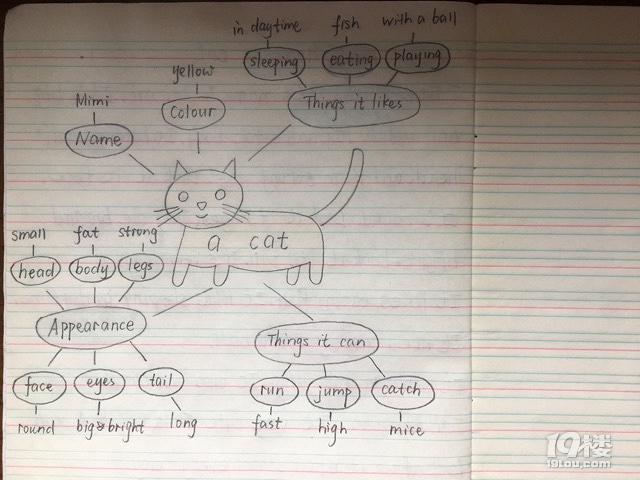 in daytime fish with a ball
sleeping eating playing
Things it likes
yellow
Colour
Mimi
Name
a cat
small fat strong
head body legs
Appearance
face eyes tail
round big & bright long
Things it can
run jump catch
fast high mice
19楼
19lou.com